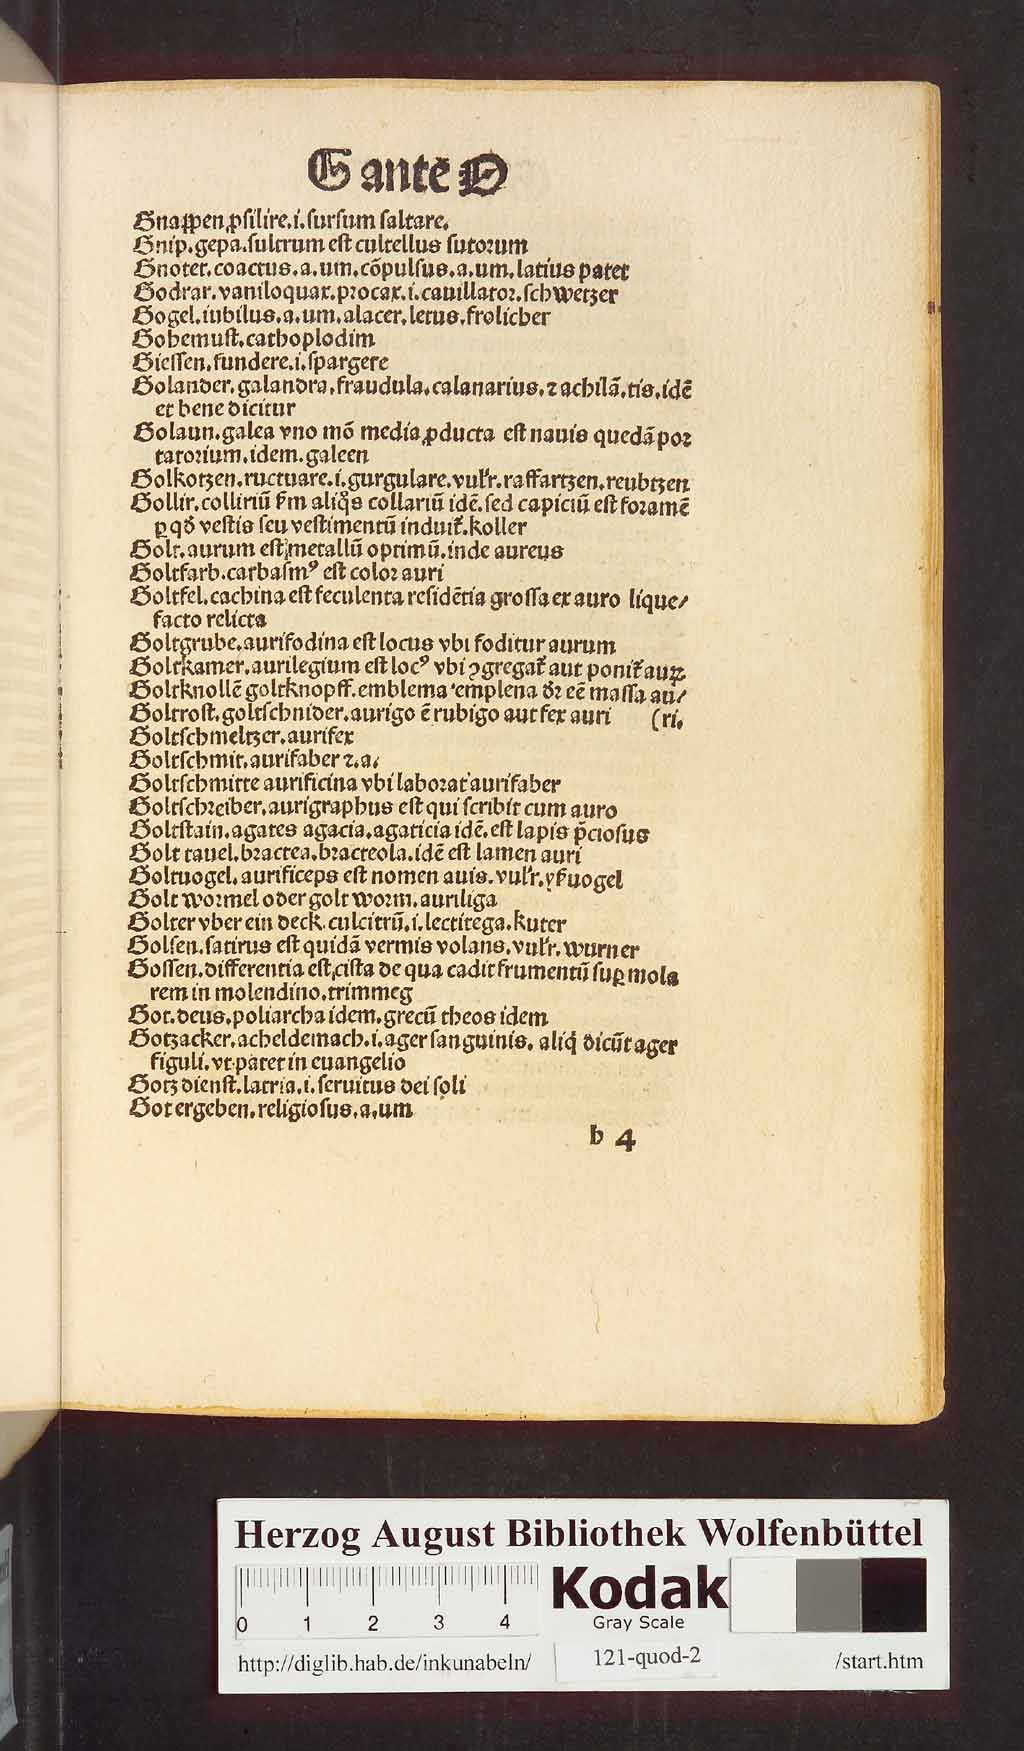 G antē O
Gnappen.ꝓsilire.i.sursum saltare.
Gnip.gepa.sultrum est cultellus sutorum
Gnoter.coactus.a.um.cōpulsus.a.um.latius patet
Godrar.vaniloquax.procax.i.cauillator.schwetzer
Gogel.iubilus.a.um.alacer.letus.frolicher
Gohemust.cathoplodim
Giessen.fundere.i.spargere
Golander.galandra.fraudula.calanarius.⁊ achilā.tis.idē
et bene dicitur
Golaun.galea vno mō media ꝓducta est nauis quedā por
tatorium.idem.galeen
Golkotzen.ructuare.i.gurgulare.vulr̄.raffartzen.reubtzen
Gollir.colliriū ẜm aliq̊s collariū idē.sed capiciū est foramē
ꝑ qd̄ vestis seu vestimentū induit᷑.koller
Golt.aurum est metallū optimū.inde aureus
Goltfarb.carbasmꝰ est color auri
Goltfel.cachina est feculenta residētia grossa ex auro lique⸗
facto relicta
Goltgrube.aurifodina est locus vbi foditur aurum
Goltkamer.aurilegium est locꝰ vbi ꝯgregat᷑ aut ponit᷑ auꝝ
Goltknollē goltknopff.emblema emplena dr̄ eē massa au⸗
Goltrost.goltschnider.aurigo ē rubigo aut fex auri (ri.
Goltschmeltzer.aurifex
Goltschmit.aurifaber ⁊.a.
Goltschmitte aurificina vbi laborat aurifaber
Goltschreiber.aurigraphus est qui scribit cum auro
Goltstain.agates agacia.agaticia idē.est lapis p̄ciosus
Golt tauel.bractea.bracteola.idē est lamen auri
Goltuogel.aurificeps est nomen auis.vulr̄. vogel
Golt wormel oder golt worm.auriliga
Golter vber ein deck.culcitrū.i.lectitega.kuter
Golsen.satirus est quidā vermis volans.vulr̄.wurner
Gossen.differentia est cista de qua cadit frumentū suꝑ mola
rem in molendino.trimmeg
Got.deus.poliarcha idem.grecū theos idem
Gotzacker.acheldemach.i.ager sanguinis. aliq̄ dicūt ager
figuli.vt patet in euangelio
Gotz dienst.latria.i.seruitus dei soli
Got ergeben.religiosus.a.um
b 4
Herzog August Bibliothek Wolfenbüttel
0 1 2 3 4
Kodak
Gray Scale
http://diglib.hab.de/inkunabeln/ 121-quod-2 /start.htm